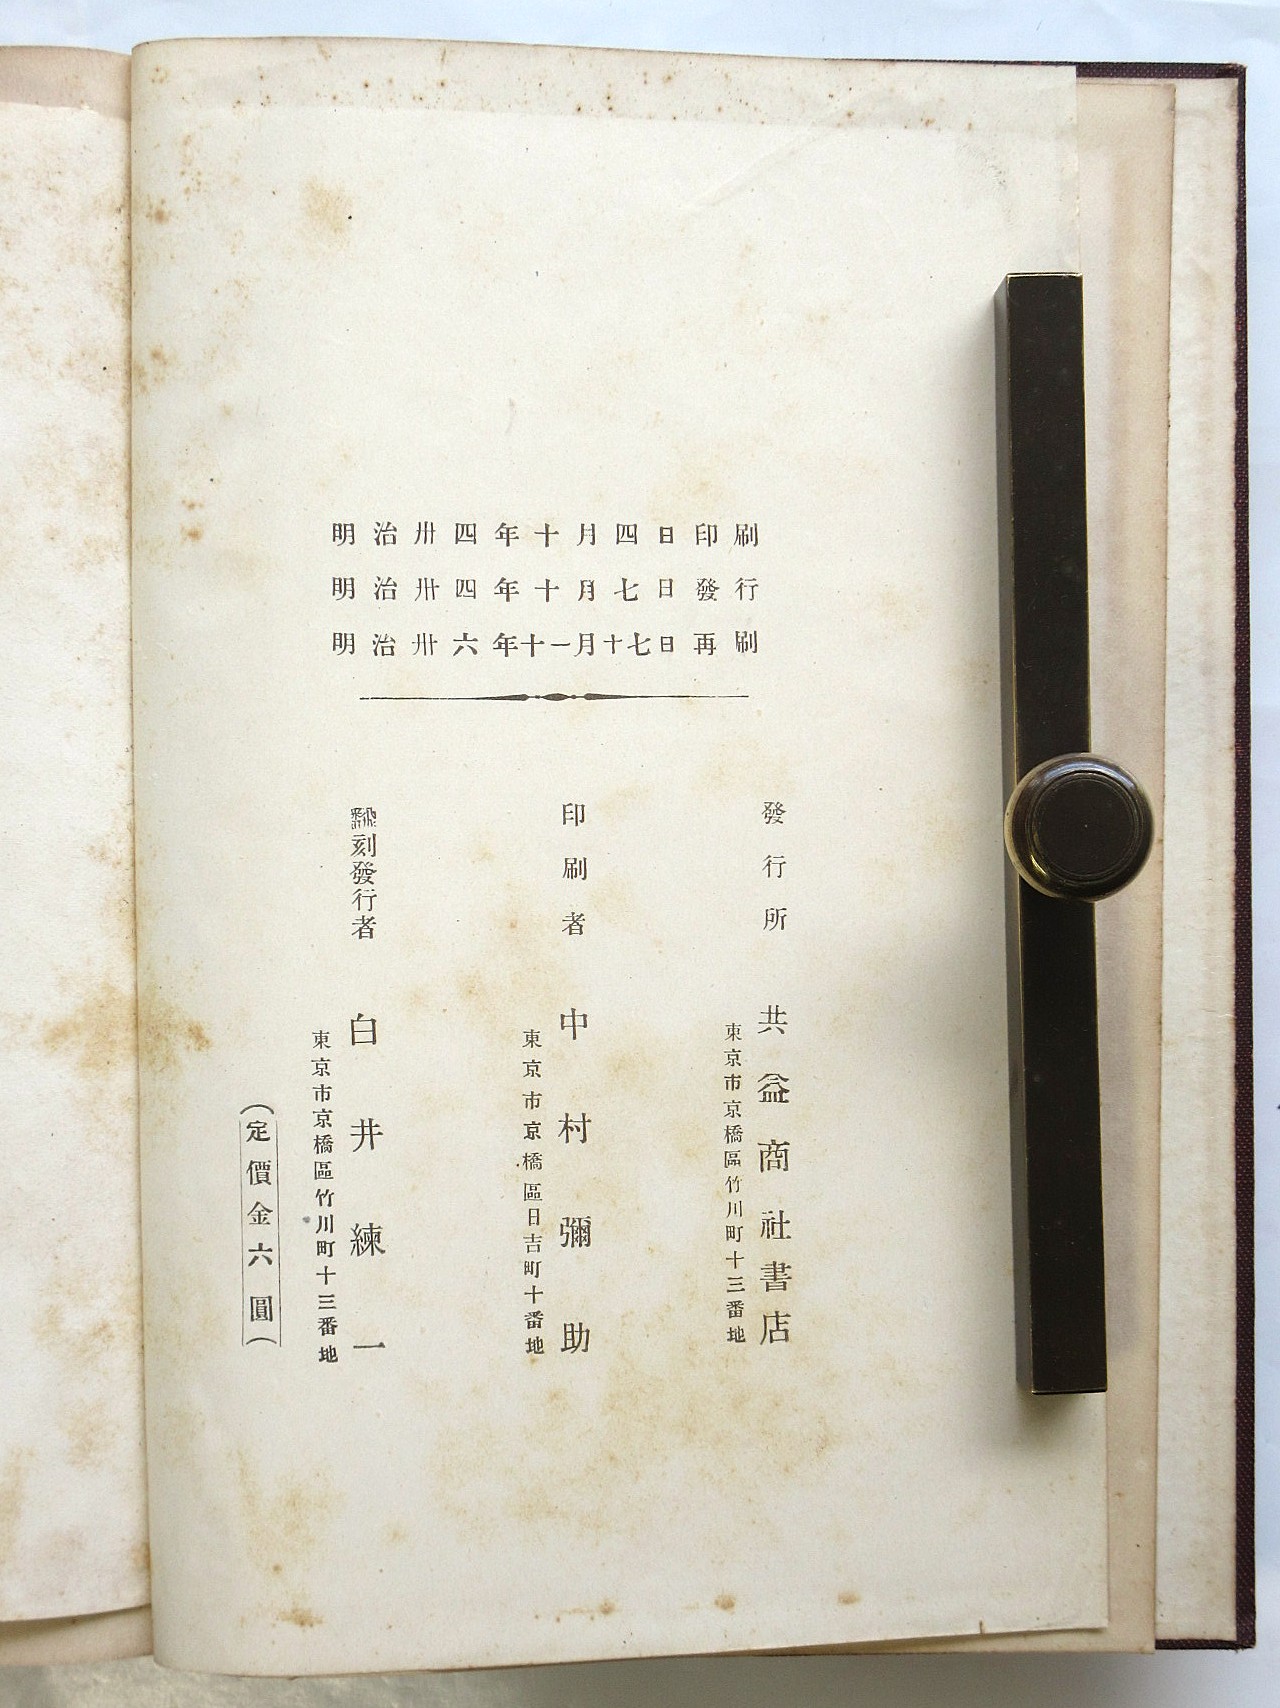 明治卅四年十月四日印刷
明治卅四年十月七日發行
明治卅六年十一月十七日再刷
發行所 共益商社書店
東京市京橋區竹川町十三番地
印刷者 中村彌助
東京市京橋區日吉町十番地
飜刻發行者 白井練一
東京市京橋區竹川町十三番地
(定價金六圓)